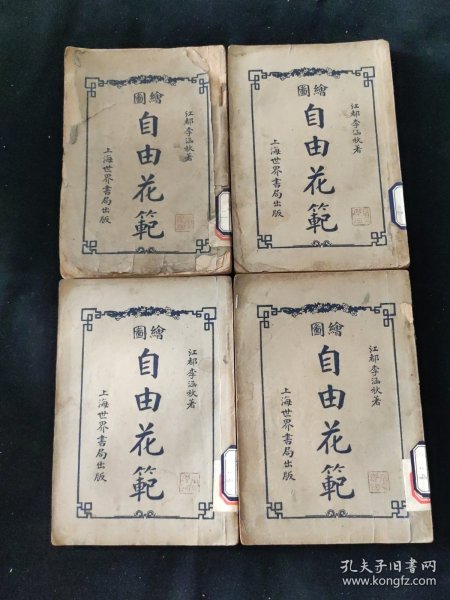 江都李涵秋著
繪圖
自由花範
上海世界書局出版
江都李涵秋著
繪圖
自由花範
上海世界書局出版
江都李涵秋著
繪圖
自由花範
上海世界書局出版
江都李涵秋著
繪圖
自由花範
上海世界書局出版
孔夫子旧书网
www.kongfz.com